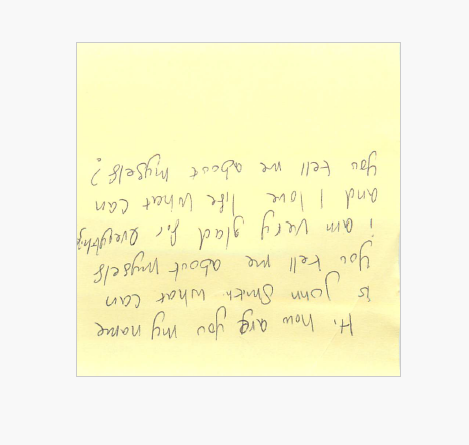 Hi, how are you my name
is John Smith what can
you tell me about myself
i am very glad for everything
and I love life what can
you tell me about myself?